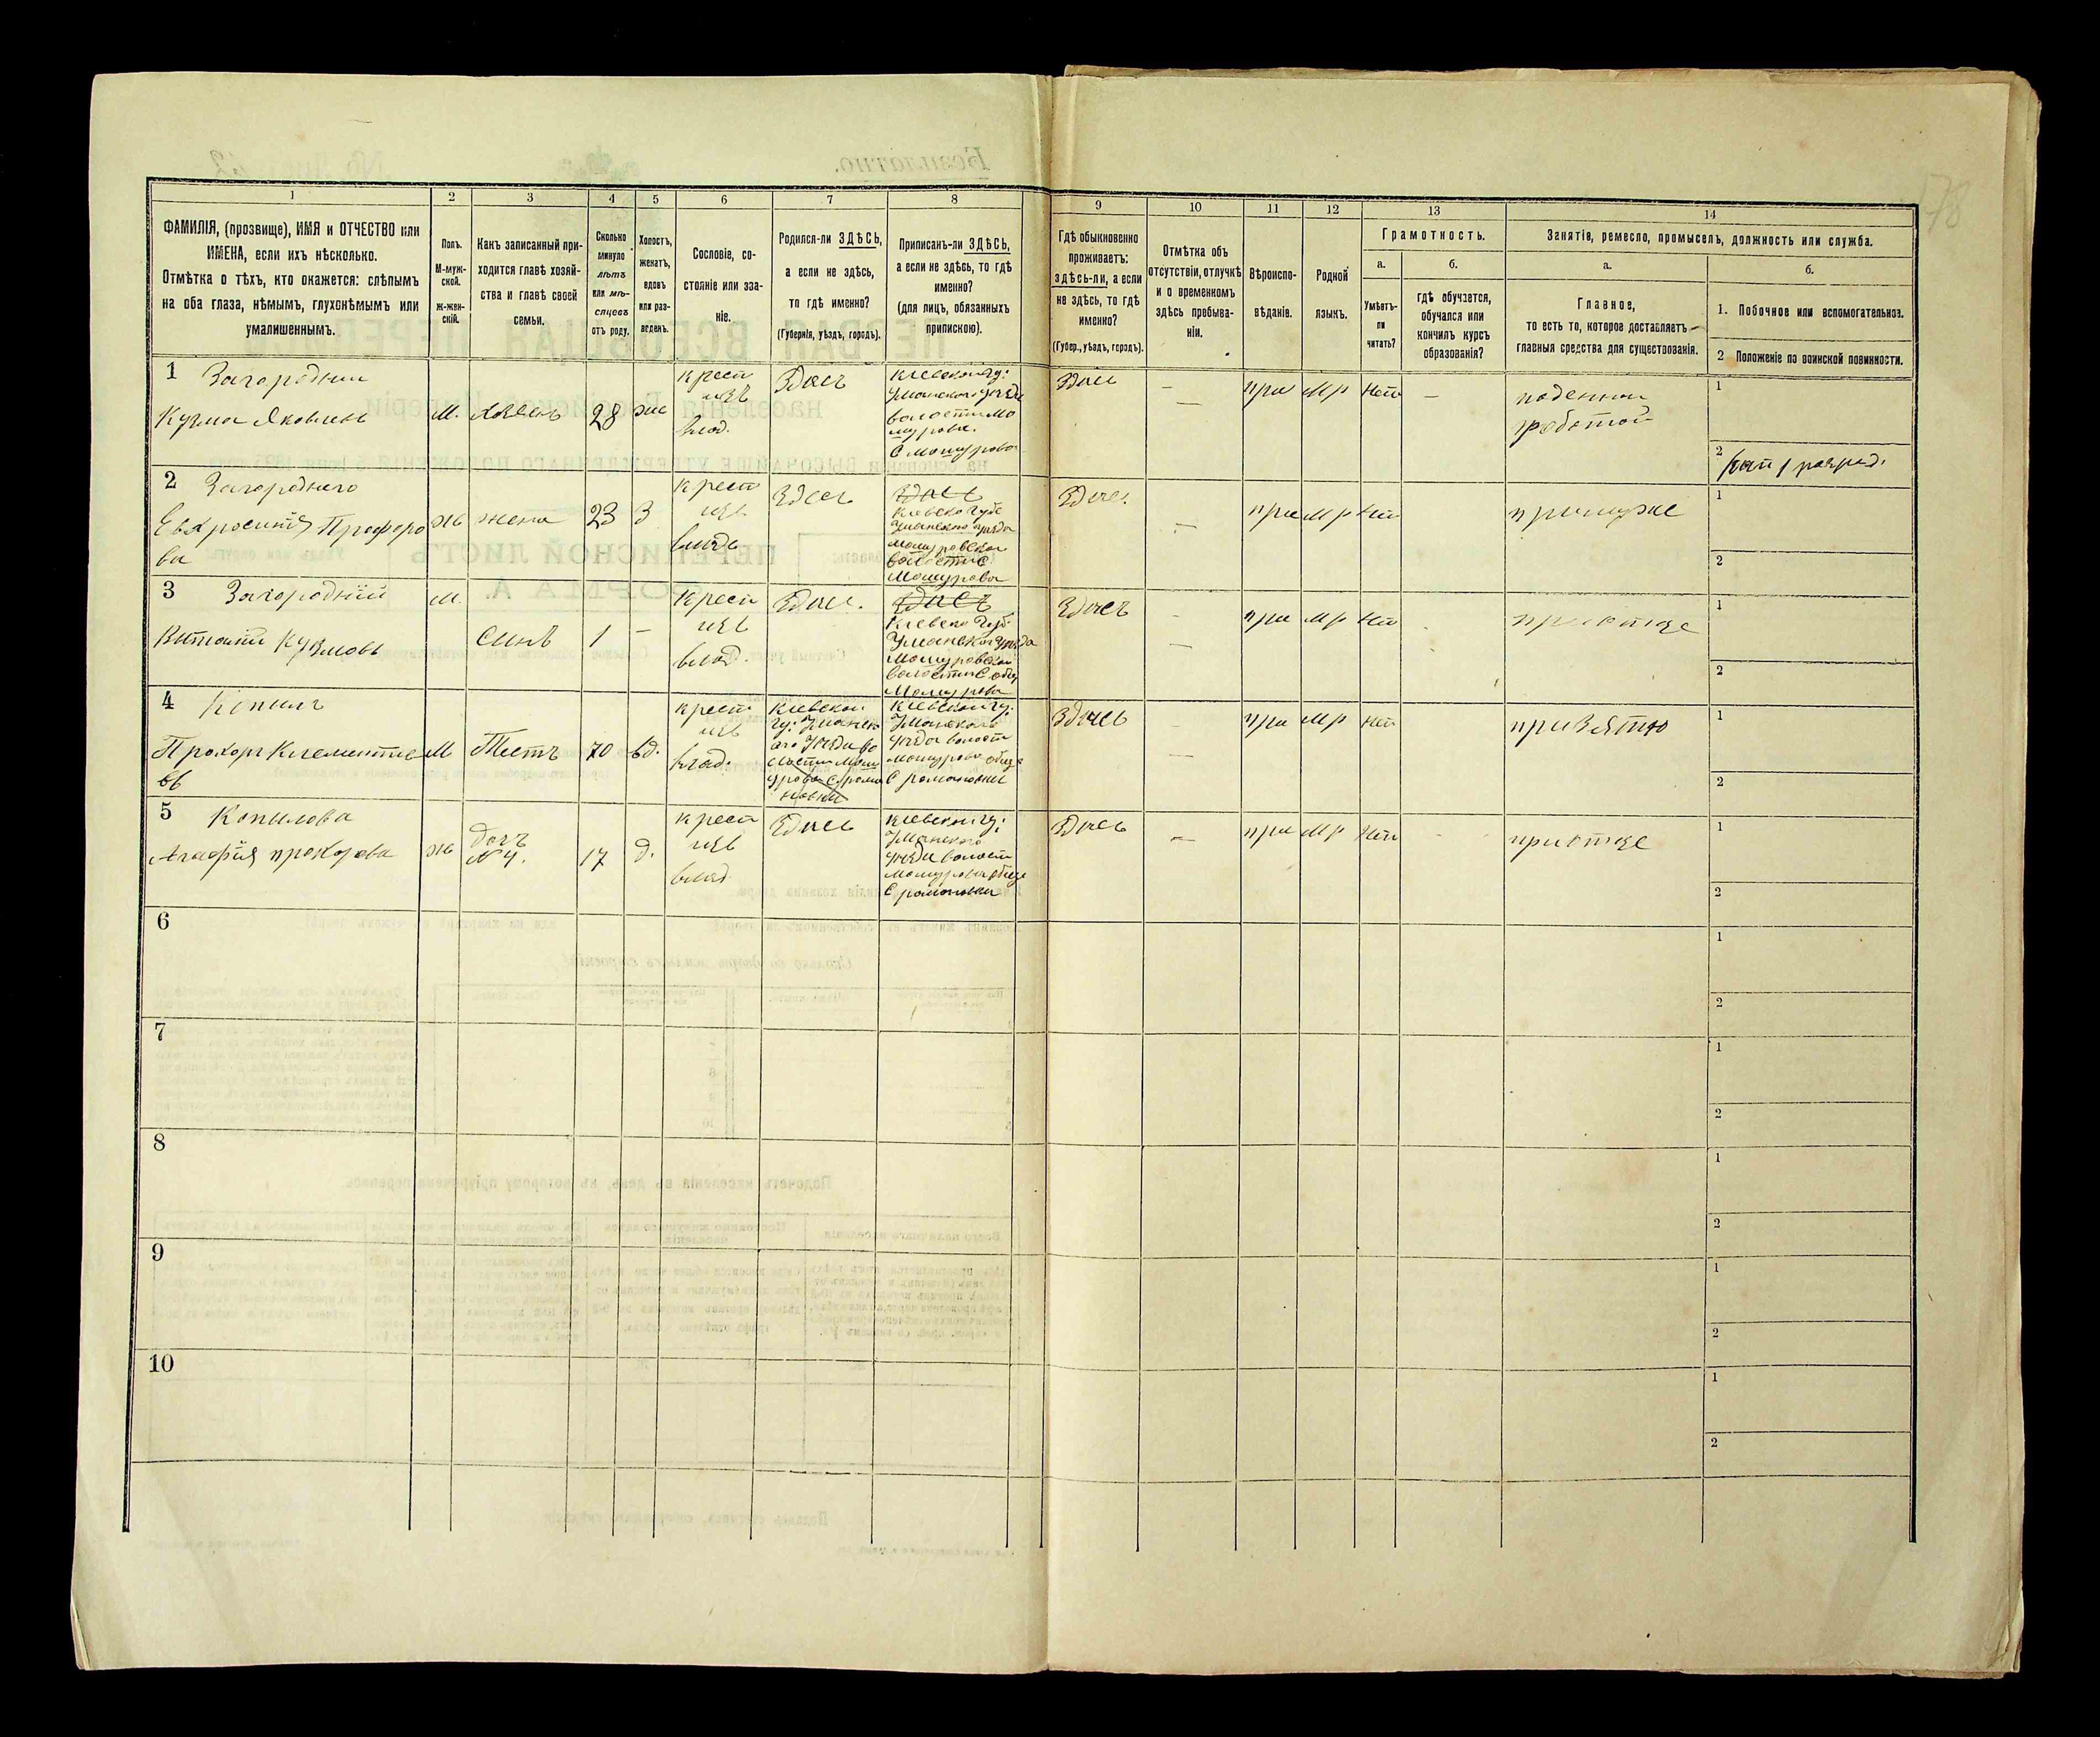 1
2
3
4
5
6
7
8
9
10
11
12
13
14
ФАМИЛІЯ, (прозвище), ИМЯ и ОТЧЕСТВО или
ИМЕНА, если ихъ нѣсколько.
Отмѣтка о тѣхъ, кто окажется: слѣпымъ
на оба глаза, нѣмымъ, глухонѣмымъ или
умалишеннымъ.
Полъ.
М-муж-
ской.
Ж-жен-
скій.
Какъ записанный при-
ходится главѣ хозяй-
ства и главѣ своей
семьи.
Сколько
минуло
лѣтъ
или мѣ-
сяцевъ
отъ роду.
Холостъ,
женатъ,
вдовъ
или раз-
веденъ.
Сословіе, со-
стояніе или зва-
ніе.
Родился-ли ЗДѢСЬ,
а если не здѣсь,
то гдѣ именно?
(Губернія, уѣздъ, городъ).
Приписанъ-ли ЗДѢСЬ,
а если не здѣсь, то гдѣ
именно?
(для лицъ, обязанныхъ
припискою).
Гдѣ обыкновенно
проживаетъ:
здѣсь-ли, а если
не здѣсь, то гдѣ
именно?
(Губер., уѣздъ, городъ).
Отмѣтка объ
отсутствіи, отлучкѣ
и о временномъ
здѣсь пребыва-
ніи.
Вѣроиспо-
вѣданіе.
Родной
языкъ.
Грамотность.
а.
Умѣетъ-
ли
читать?
б.
гдѣ обучается,
обучался или
кончилъ курсъ
образованія?
Занятіе, ремесло, промыселъ, должность или служба.
а.
Главное,
то есть то, которое доставляетъ
главныя средства для существованія.
б.
1. Побочное или вспомогательное.
2 Положеніе по воинской повинности.
1 Загородний
Кузма Яковлевъ
М.
Хозяенъ
28
же
крест
изъ
влад.
Здесъ
Киевской гу:
Уманского уезда
волости Мо
шурова.
С Мошурова
Здесь
—
пра
Мр
Нет
—
поденной
работой
1
2
рат 1 разряд.
2 Загороднего
Евхросиния Прохоро
ва
Ж
жена
23
З
крест
изъ
владе
Здесь
Здесь
Киевско губ
Уманского уезда
мошуровской
волости С
Мошурова
Здесь.
—
пра
Мр
Нет
при муже
1
2
3 Загородний
Витолий Кузмовъ
М.
Синъ
1
—
крест
изъ
влад.
Здесь.
Здесь
Киевско губ
Уманского уезда
Мошуровской
волости С. общ
Мошурова
Здесъ
—
пра
Мр
Нет
при отце
1
2
4 Копилъ
Прохоръ Клементие
въ
М
Тестъ
70
вд.
крест
изъ
влад.
Киевской
гу: Уманск
ого Уезда во
лости Мош
урова С рома
новки
Киевской гу:
Уманского
Уезда волости
мошурова обще
С романовки
Здесь
—
пра
Мр
Нет
при Зятю
1
2
5 Копилова
Агафия прохорова
Ж
дочъ
№ 4.
17
д.
крест
изъ
влад
Здесь
Киевской гу:
Уманского
Уезда волости
мошурова обще
С романовки
Здесь
—
пра
Мр
Нет
при отце
1
2
6
1
2
7
1
2
8
1
2
9
1
2
10
1
2